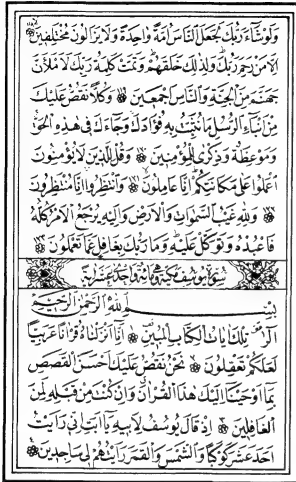 وَلَوْ شَاءَ رَبُّكَ لَجَعَلَ النَّاسَ اُمَّةً وَاحِدَةً وَلَا يَزَالُونَ مُخْتَلِفِينَ
اِلَّا مَنْ رَحِمَ رَبُّكَ وَلِذٰلِكَ خَلَقَهُمْ وَتَمَّتْ كَلِمَةُ رَبِّكَ لَاَمْلَـَٔنَّ
جَهَنَّمَ مِنَ الْجِنَّةِ وَالنَّاسِ اَجْمَعِينَ وَكُلًّا نَقُصُّ عَلَيْكَ
مِنْ اَنْبَاءِ الرُّسُلِ مَا نُثَبِّتُ بِهِ فُؤَادَكَ وَجَاءَكَ فِى هٰذِهِ الْحَقُّ
وَمَوْعِظَةٌ وَذِكْرٰى لِلْمُؤْمِنِينَ وَقُلْ لِلَّذِينَ لَا يُؤْمِنُونَ
اعْمَلُوا عَلٰى مَكَانَتِكُمْ اِنَّا عَامِلُونَ وَانْتَظِرُوا اِنَّا مُنْتَظِرُونَ
وَلِلّٰهِ غَيْبُ السَّمٰوَاتِ وَالْاَرْضِ وَاِلَيْهِ يُرْجَعُ الْاَمْرُ كُلُّهُ
فَاعْبُدْهُ وَتَوَكَّلْ عَلَيْهِ وَمَا رَبُّكَ بِغَافِلٍ عَمَّا تَعْمَلُونَ
سورة يوسف مكية وهى مائة واحدى عشرة اية
بِسْمِ اللّٰهِ الرَّحْمٰنِ الرَّحِيمِ
الٓرٰ تِلْكَ اٰيَاتُ الْكِتَابِ الْمُبِينِ اِنَّا اَنْزَلْنَاهُ قُرْاٰنًا عَرَبِيًّا
لَعَلَّكُمْ تَعْقِلُونَ نَحْنُ نَقُصُّ عَلَيْكَ اَحْسَنَ الْقَصَصِ
بِمَا اَوْحَيْنَا اِلَيْكَ هٰذَا الْقُرْاٰنَ وَاِنْ كُنْتَ مِنْ قَبْلِهِ لَمِنَ
الْغَافِلِينَ اِذْ قَالَ يُوسُفُ لِاَبِيهِ يَا اَبَتِ اِنِّى رَاَيْتُ
اَحَدَ عَشَرَ كَوْكَبًا وَالشَّمْسَ وَالْقَمَرَ رَاَيْتُهُمْ لِى سَاجِدِينَ